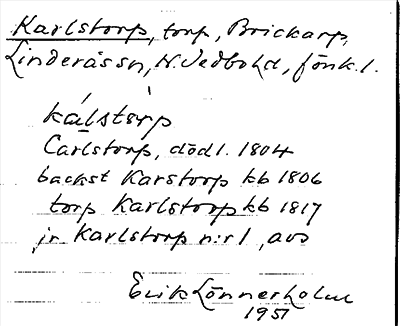 Karlstorp, torp, Brickarp,
Linderås sn, N. Vedbo hd, Jönk. l.
kálstərp
Carlstorp, dödl. 1804
backst Karstorp kb 1806
torp Karlstorp kb 1817
jr Karlstorp nr 1, avs
Erik Lönnerholm
1951